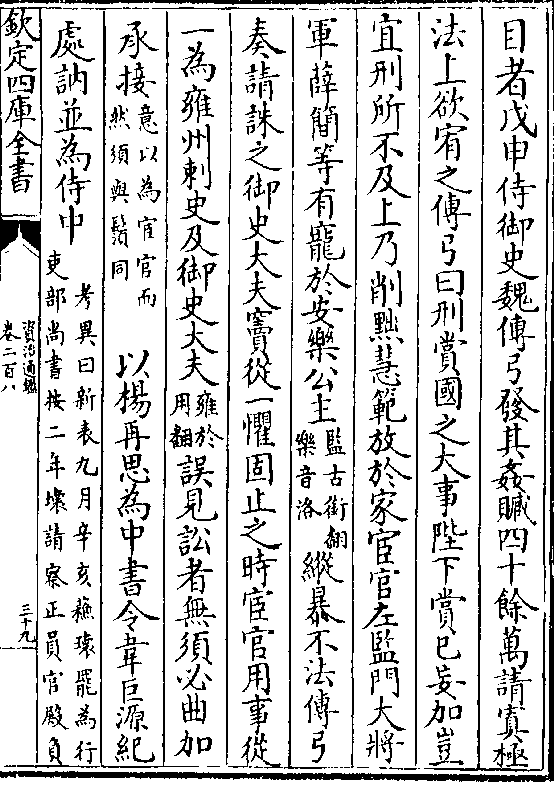 目者戊申侍御史魏傳弓發其姦贓四十餘萬請寘極
法上欲宥之傳弓曰刑賞國之大事陛下賞已妄加豈
宜刑所不及上乃削黜慧範放於家宦官左監門大將
軍薛簡等有寵於安樂公主監古銜翻樂音洛縱暴不法傳弓
奏請誅之御史大夫竇從一懼固止之時宦官用事從
一為雍州刺史及御史大夫雍於用翻誤見訟者無須必曲加
承接意以為宦官而然須與鬚同以楊再思為中書令韋巨源紀
處訥並為侍中考異曰新表九月辛亥蘇瓌罷為行吏部尚書按二年壞請察正員官殿負
欽定四庫全書
資治通鑑
卷二百八
三十九